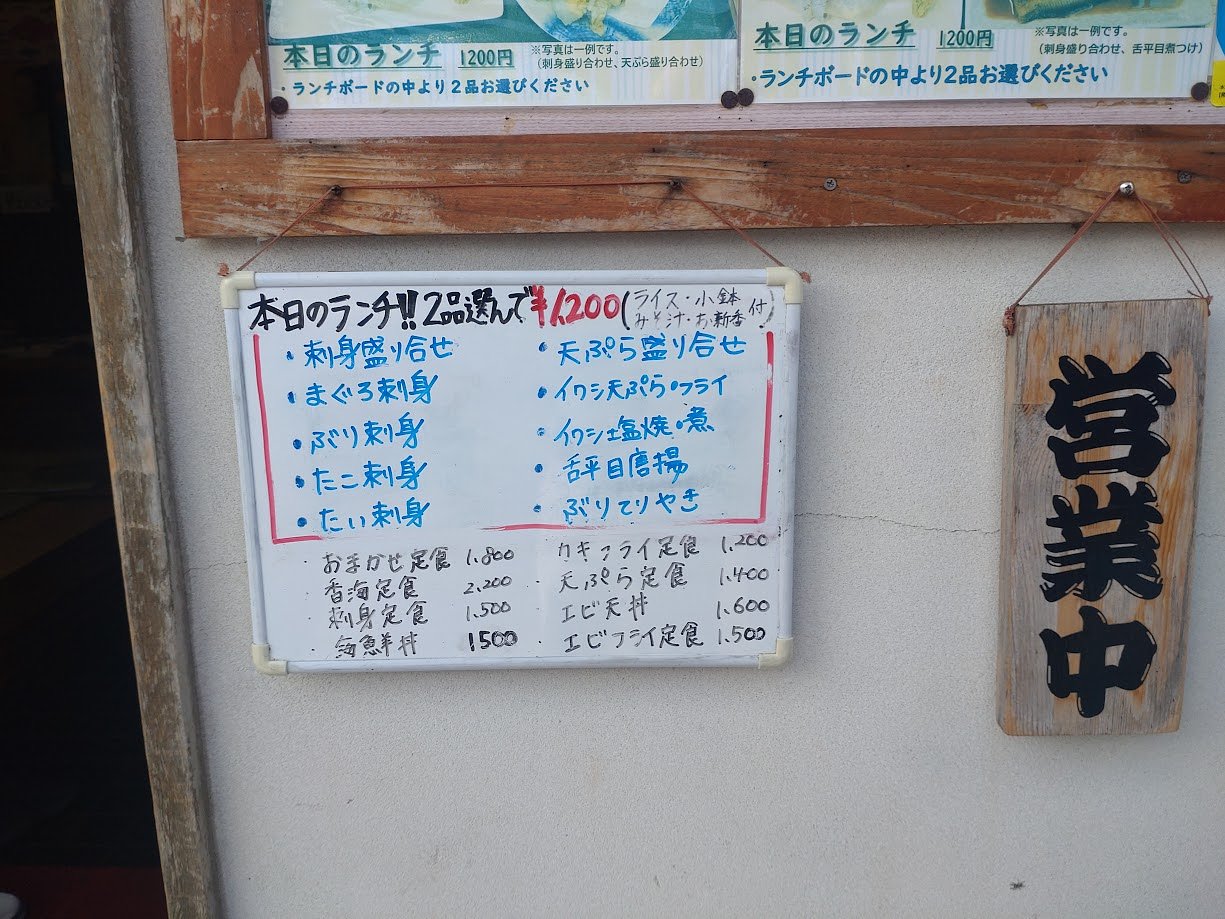 本日のランチ 1200円
※写真は一例です。
(刺身盛り合わせ、天ぷら盛り合わせ)
・ランチボードの中より2品お選びください
本日のランチ 1200円
※写真は一例です。
(刺身盛り合わせ、舌平目煮つけ)
・ランチボードの中より2品お選びください
本日のランチ!! 2品選んで¥1,200(ライス・小鉢
みそ汁・お新香付)
・刺身盛り合せ
・まぐろ刺身
・ぶり刺身
・たこ刺身
・たい刺身
・天ぷら盛り合せ
・イワシ天ぷら・フライ
・イワシ塩焼・煮
・舌平目唐揚
・ぶりてりやき
・おまかせ定食 1.800
・香海定食 2.200
・刺身定食 1.500
・海鮮丼 1500
・カキフライ定食 1.200
・天ぷら定食 1.400
・エビ天丼 1.600
・エビフライ定食 1.500
営業中